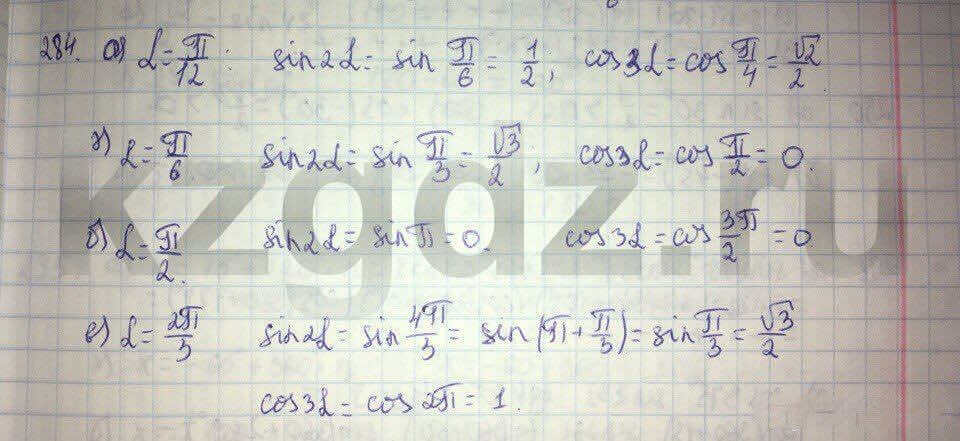 284. а) α = π/12 : sin2α = sin π/6 = 1/2; cos3α = cos π/4 = √2/2.
г) α = π/6 sin2α = sin π/3 = √3/2; cos3α = cos π/2 = 0.
б) α = π/2. sin2α = sinπ = 0. cos3α = cos 3π/2 = 0
е) α = 2π/3 sin2α = sin 4π/3 = sin(π + π/3) = sin π/3 = √3/2
cos3α = cos 2π = 1.
kzgdz.ru